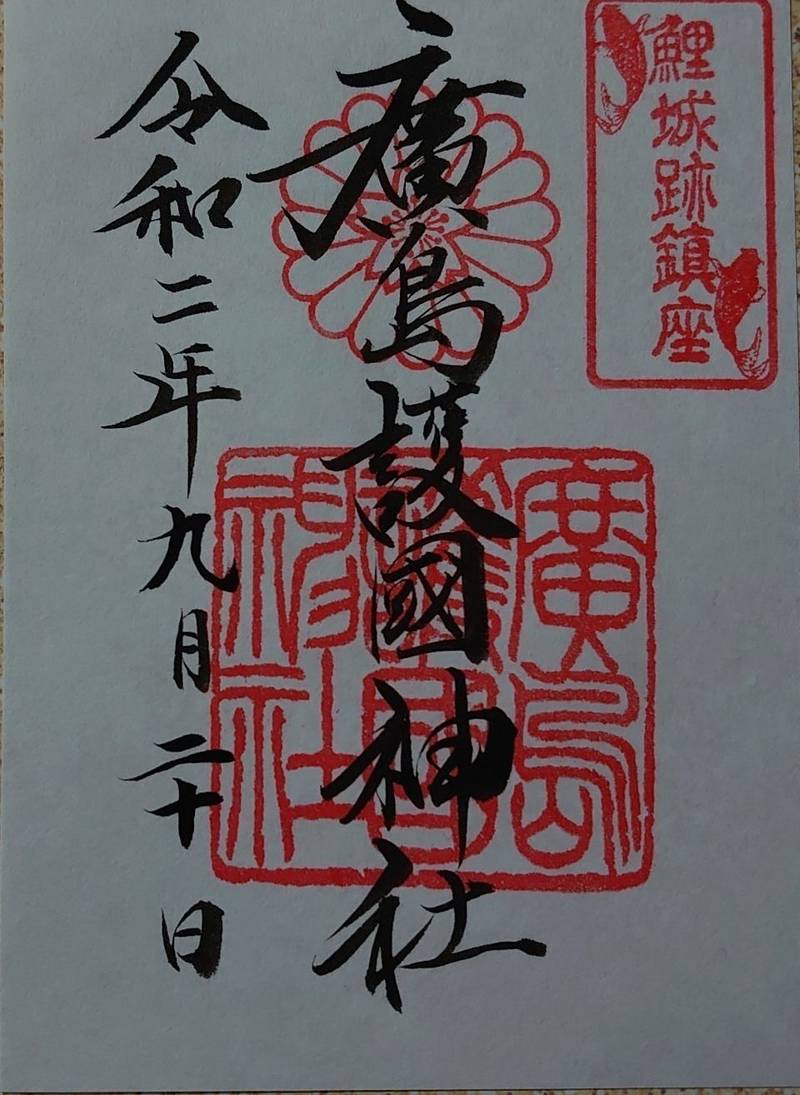 鯉城跡鎮座
廣島護國神社
廣島
護國
神社
令和二年九月二十日